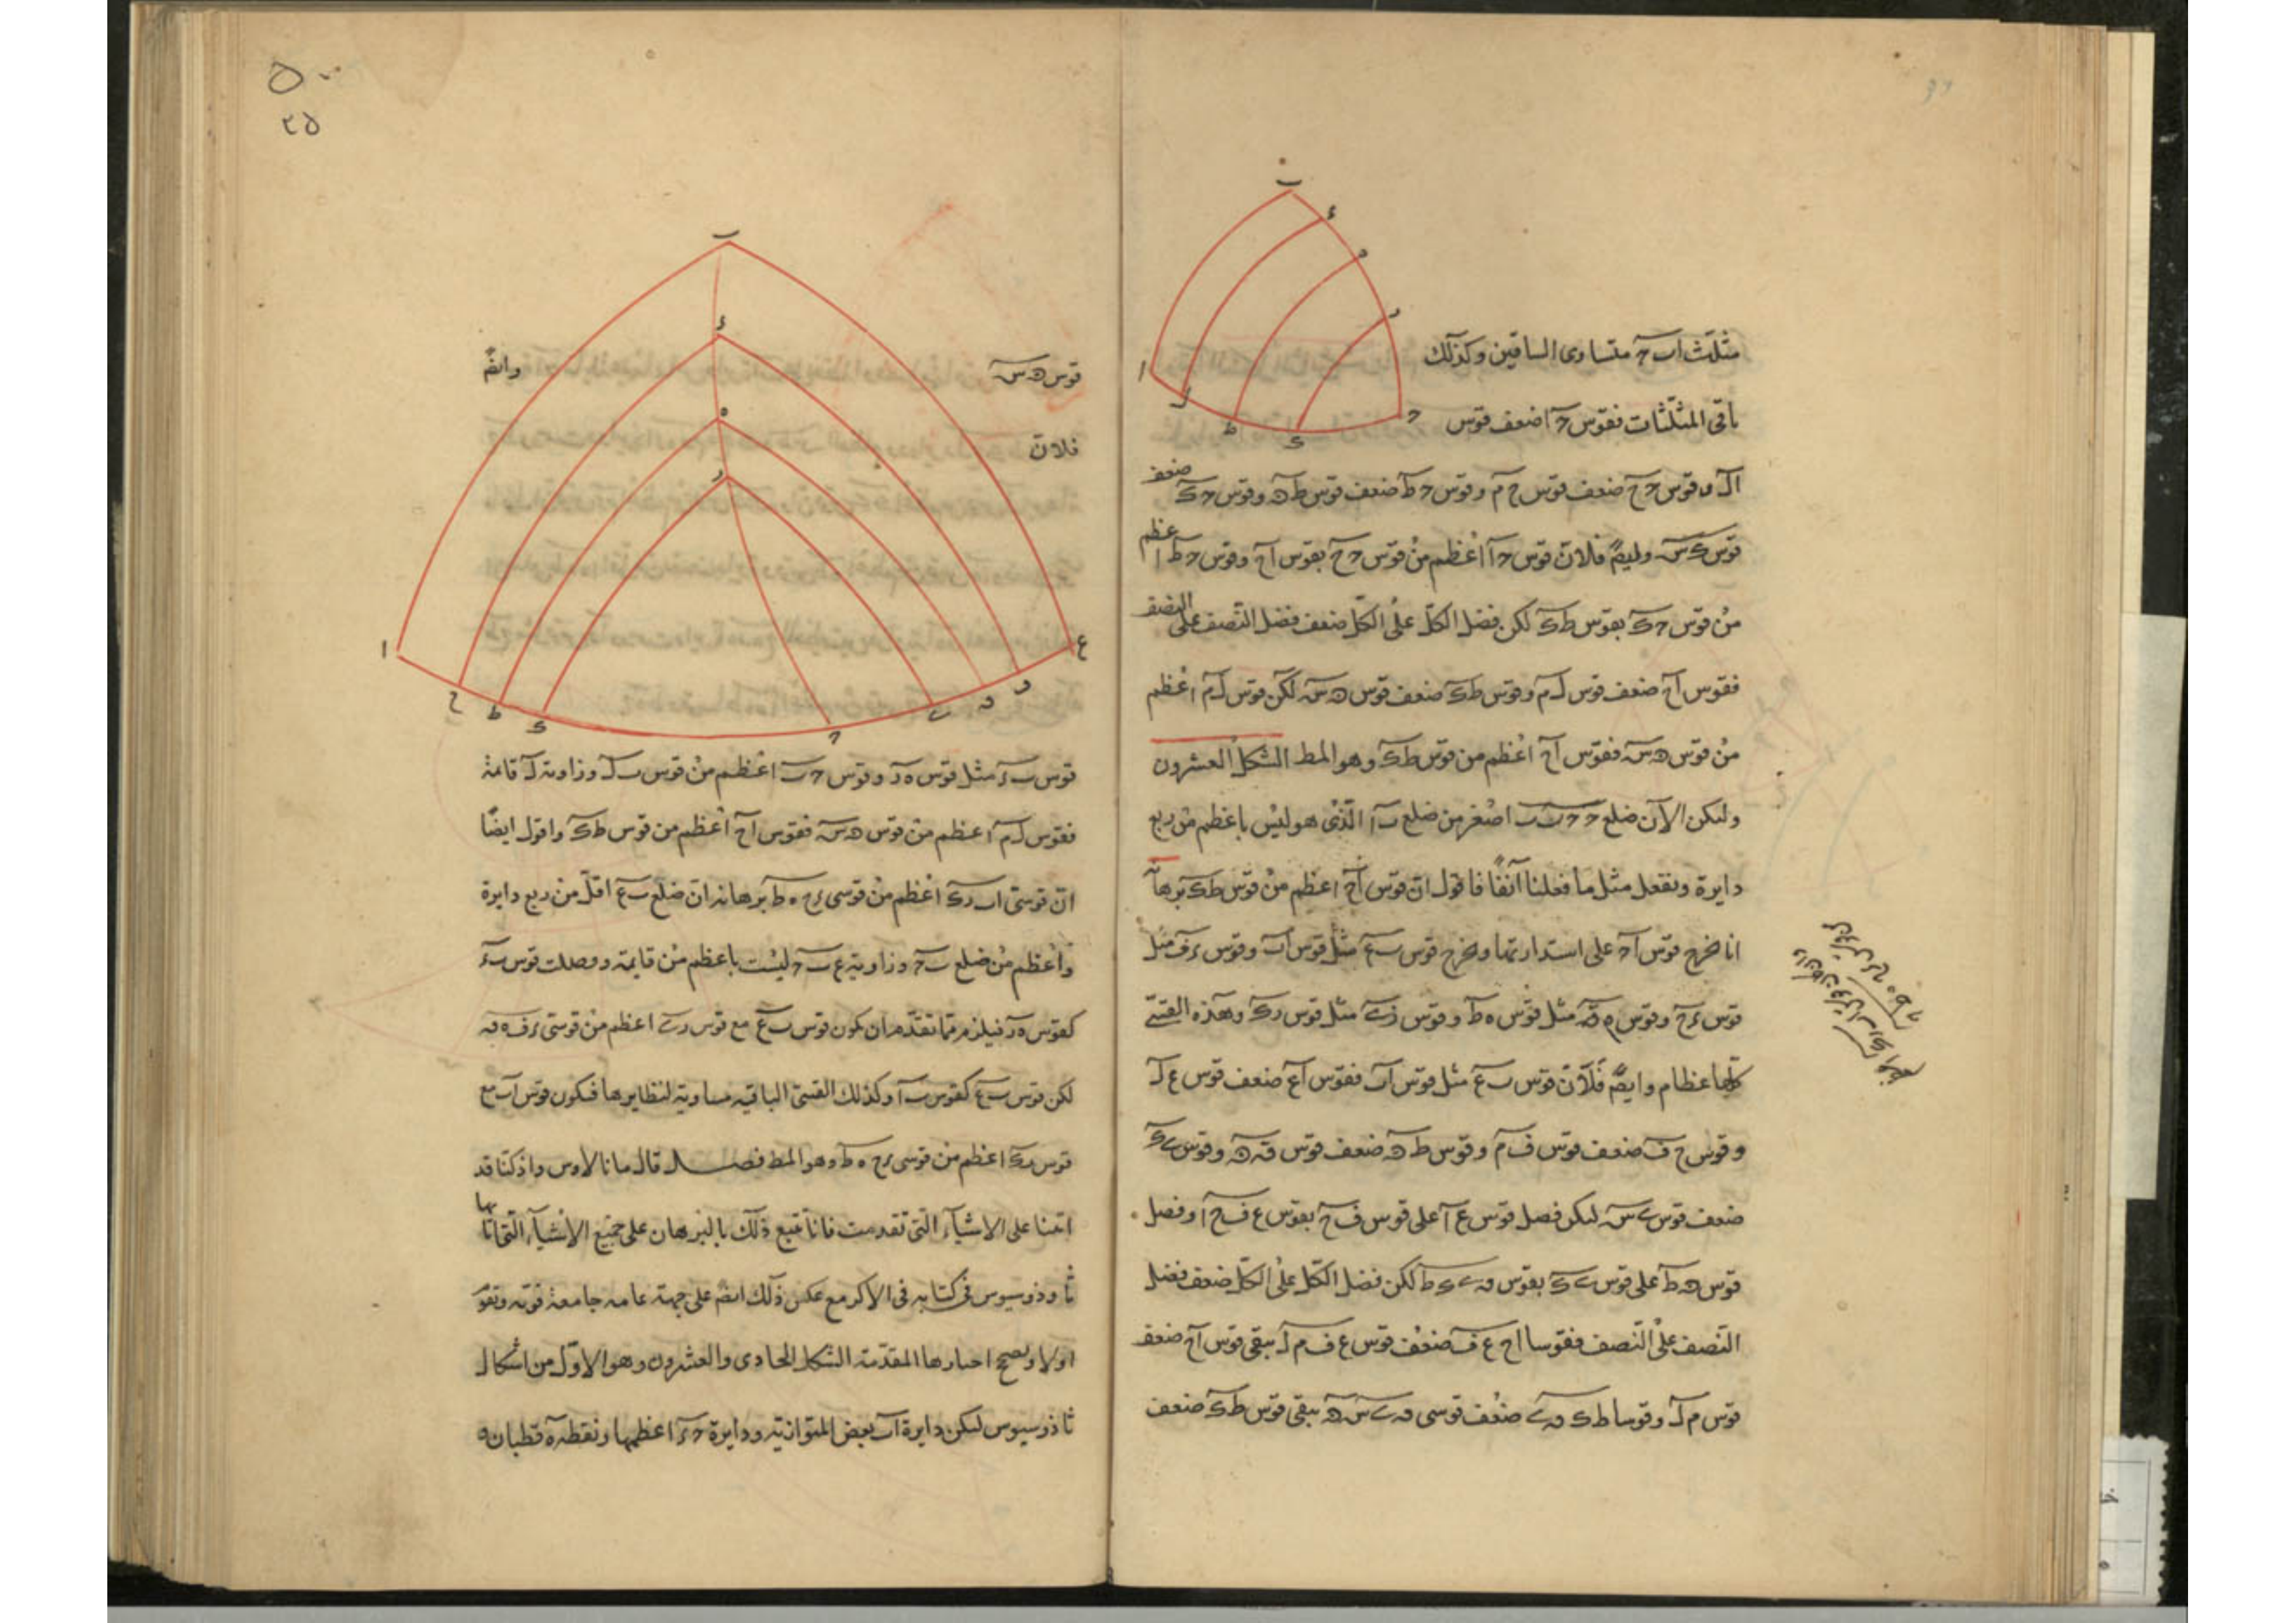 مثلث اب ح متساوى الساقين وكذلك
باقى المثلثات فقوس ح ا ضعف قوس
ا ل وقوس ح ح ضعف قوس ح م وقوس ح ط ضعف قوس ط ه وقوس ح ك ضعف
قوس ك س وايضً فلان قوس ح ا اعظم من قوس ح ح بقوس ا ح وقوس ح ط اعظم
من قوس ح ك بقوس ط ك لكن فضل الكل على الكل ضعف فضل النصف على النصف
فقوس ا ح ضعف قوس ل م وقوس ط ك ضعف قوس ه س لكن قوس ل م اعظم
من قوس ه س فقوس ا ح اعظم من قوس ط ك وهو المط الشكل العشرون
وليكن الآن ضلع ح ب اصغر من ضلع ب ا الذى هو ليس باعظم من ربع
دايرة ونفعل مثل ما فعلنا آنفًا فاقول ان قوس ا ح اعظم من قوس ط ك برهانه
انا نخرج قوس ا ح على استدارتها ونخرج قوس ب ع مثل قوس ا ب وقوس ء ف مثل
قوس ء ح وقوس ه ق مثل قوس ه ط وقوس ز ى مثل قوس ر ك وهذه القسى
كلها عظام وايضً فلان قوس ب ع مثل قوس ا ب فقوس ا ع ضعف قوس ع ل
وقوس ح ف ضعف قوس ف م وقوس ط ق ضعف قوس ق ه وقوس ى ك
ضعف قوس ى س ليكن فضل قوس ع ا على قوس ف ح بقوس ع ف ح ا وفضل
قوس ق ط على قوس ى ك بقوس ق ى ك ط لكن فضل الكل على الكل ضعف فضل
النصف على النصف فقوسا ا ح ع ف ضعف قوس ع ف م ل يبقى قوس ا ح ضعف
قوس م ل وقوسا ط ك ق ى ضعف قوسى ق ى س ه يبقى قوس ط ك ضعف
قوس ه س وايضً
فلان
قوس ب ء مثل قوس ه ر وقوس ح ب اعظم من قوس ب ل وزاوية ل قائمة
فقوس ل م اعظم من قوس ه س فقوس ا ح اعظم من قوس ط ك واقول ايضًا
ان قوسى ا ب ر ك اعظم من قوسى ء ح ه ط برهانه ان ضلع ب ع اقل من ربع دايرة
واعظم من ضلع ب ح وزاوية ع ب ح ليست باعظم من قايمة وفصلت قوس ب ء
كقوس ه ر فيلزم مما تقدم ان يكون قوس ب ع مع قوس ر ى اعظم من قوسى ء ف ه ق
لكن قوس ب ع كقوس ب ا وكذلك القسى الباقيه مساوية لنظايرها فيكون قوس ا ب مع
قوس ر ك اعظم من قوسى ء ح ه ط وهو المط فصل قال مانالاوس واذ كنا قد
اتينا على الاشيآء التى تقدمت فانا نتبع ذلك بالبرهان على جميع الاشيآء التى اتا بها
ثاوذوسيوس فى كتابه فى الاكر مع عكس ذلك ايضً على جهة عامه جامعة قوته ونقو
اولا المقدمة الشكل الحادى والعشرون وهو الاول من اشكال
ثاذوسيوس ليكن دايرة ا ب بعض المتوازية ودايرة ح ء اعظمها ونقطة ه قطبان